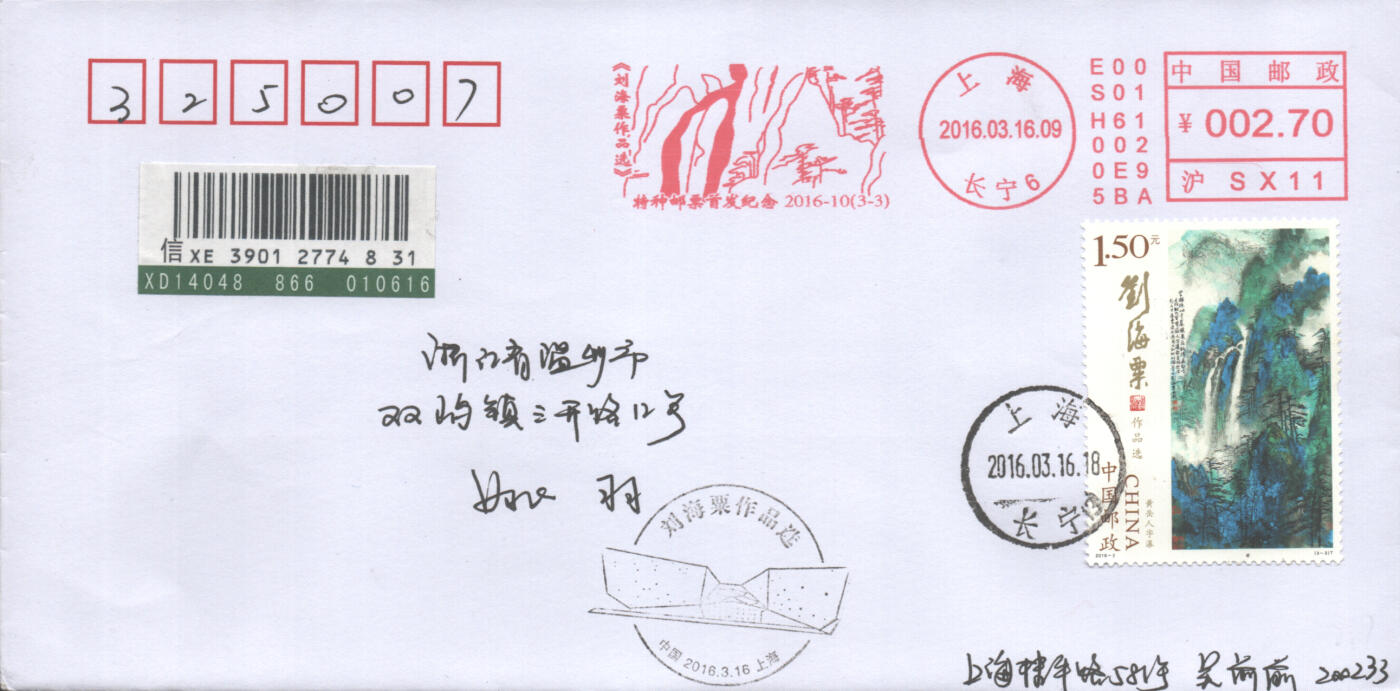 325007
信 XE 3901 2774 8 31
XD14048 866 010616
《刘海粟作品选》
特种邮票首发纪念 2016-10(3-3)
上海
2016.03.16.09
长宁6
E00
S01
H61
002
0E9
5BA
中国邮政
¥ 002.70
沪 SX11
1.50元
劉海粟
作品选
黄岳人字瀑
中国邮政
CHINA
2016-3
(3-3)T
上海
2016.03.16.18
长宁
浙江省温州市
双屿镇三开路12号
姚羽
刘海粟作品选
中国 2016.3.16 上海
上海桂平路581号 吴前前 200233